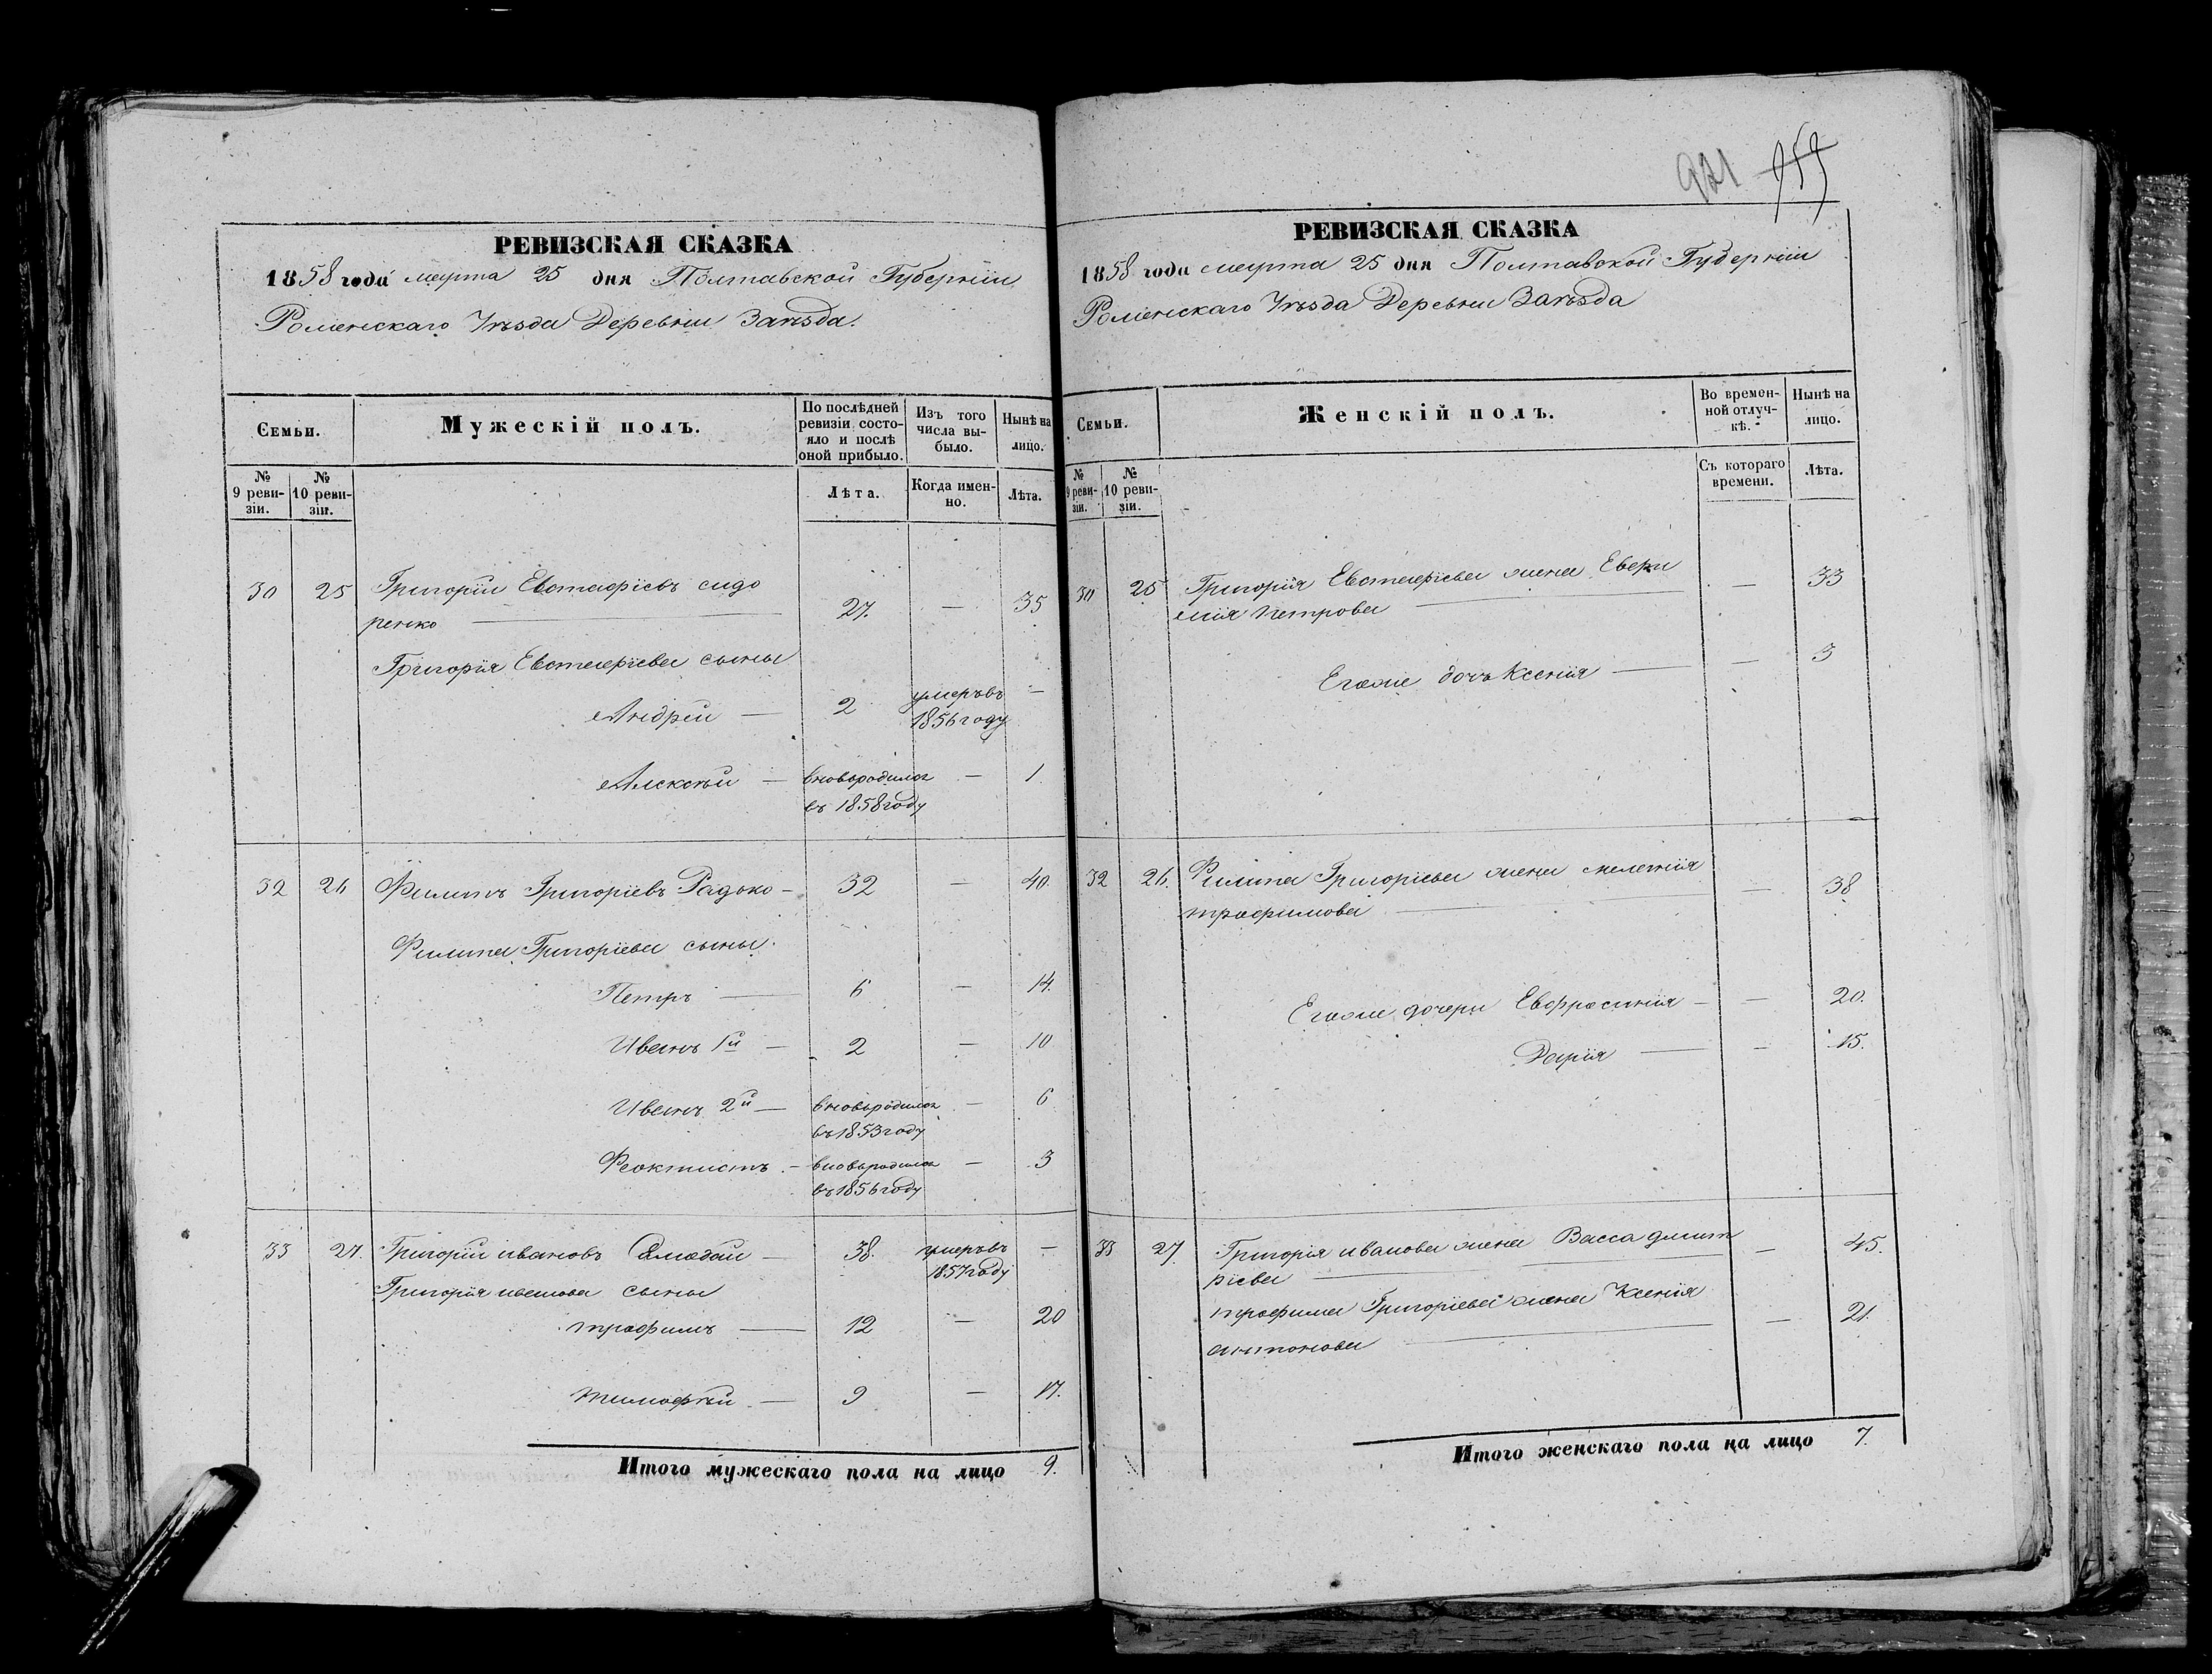 921 959
РЕВИЗСКАЯ СКАЗКА
1858 года марта 25 дня Полтавской Губернiи
Роменскаго Уѣзда Деревни Заѣзда.
Семьи.
Мужескій полъ.
По послѣдней ревизіи состояло и послѣ оной прибыло.
Изъ того числа выбыло.
Нынѣ на лицо.
№ 9 ревизіи.
№ 10 ревизіи.
Лѣта.
Когда именно.
Лѣта.
30 25 Григорій Евстафіевъ Сидо
ренко — 27. — 35
Григорія Евстафіева сыны
Андрей — 2 умеръ въ 1856 году —
Алексѣй — вновь родился въ 1858 году — 1
32 26 Филипъ Григоріевъ Радько — 32 — 40.
Филипа Григоріева сыны.
Петръ — 6 — 14.
Иванъ 1й — 2 — 10
Иванъ 2й — вновь родился въ 1853 году — 6
Феоктистъ — вновь родился въ 1856 году — 3
33 27. Григорій Ивановъ — 38. умеръ въ 1857 году —
Григорія Иванова сыны
Трофимъ — 12 — 20
Тимофѣй — 9 — 17.
Итого мужескаго пола на лицо 9.
РЕВИЗСКАЯ СКАЗКА
1858 года марта 25 дня Полтавской Губерніи
Роменскаго Уѣзда Деревни Заѣзда
Семьи.
Женскій полъ.
Во временной отлучкѣ.
Нынѣ на лицо.
№ 9 ревизіи.
№ 10 ревизіи.
Съ котораго времени.
Лѣта.
30 25 Григорія Евстафіева жена
Петрова — — 33
Егоже дочь Ксенія — — 3
32 26. Филипа Григоріева жена Меланія
Трофимова — — 38
Егоже дочери Евфросинія — — 20.
Дарія — — 15.
33 27 Григорія Иванова жена Васса Дмит
ріева — — 45.
Трофима Григоріева жена Ксенія
Антонова — — 21.
Итого женскаго пола на лицо 7.